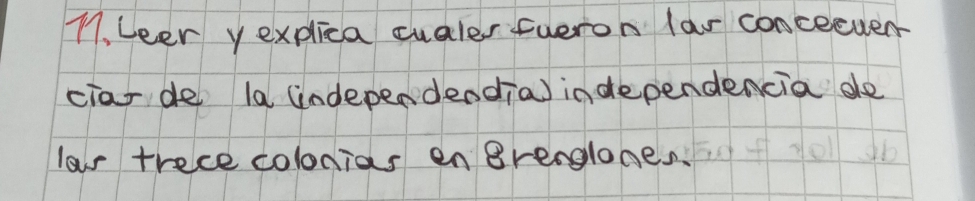 11. Leer y explica cuales fueron las concecuen
cias de la (independendia) independencia de
las trece colonias en 8 renglones.